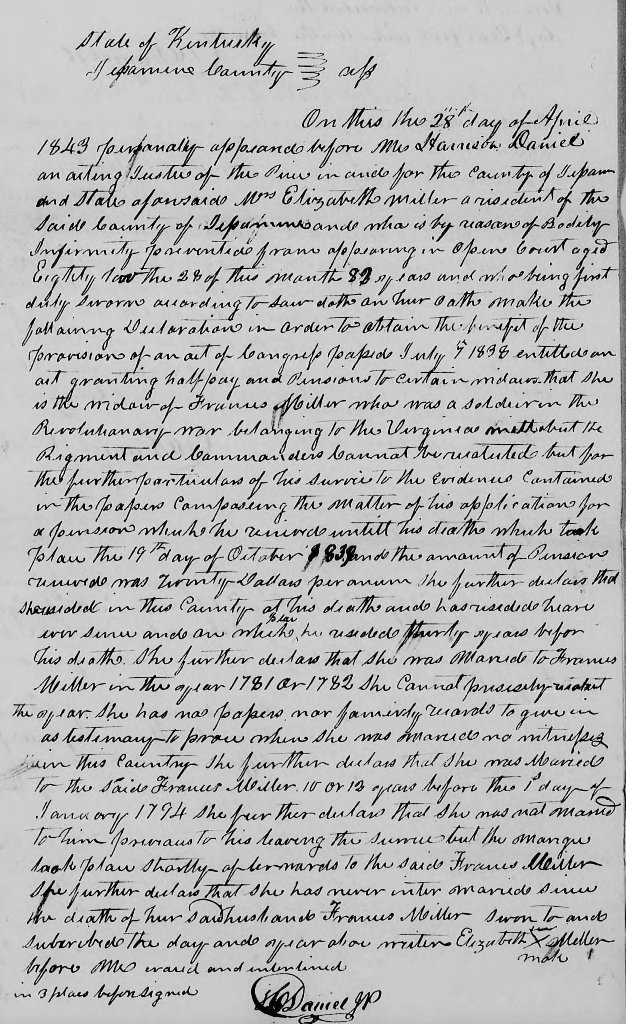 State of Kentucky
Jessamine County } ss
On this the 28th day of April
1843 personally appeared before me Harrison Daniel
an acting Justice of the Piece in and for the County of Jessam
and State aforesaid Mrs Elizabeth Miller a resident of the
Said County of Jessamine and who is by reason of Bodily
Infirmity prevented from appearing in Open Court aged
Eighty the 28 of this month 83 years and who being first
duly sworn according to Law doth on hur Oath make the
following Declaration in order to obtain the benefit of the
provision of an act of Congress passed July 7 1838 entitled an
act granting half pay and Pensions to certain widows that She
is the widow of Frances Miller who was a soldier in the
Revolutionary war belonging to the Virginia but the
Rigment and Commanders Cannot be but for
the further particulars of his survice to the Evidence Contained
in the papers Composing the Matter of his application for
a pension which he received untill his death which took
place the 19th day of October 1839 and the amount of Pension
received was twenty Dollars per anum She further declars that
She resided in this County at his death and has resided heare
ever since and an which place he resided thirty years befor
his death. She further declars that She was Maried to Frances
Miller in the year 1781 or 1782 She Cannot precisely
the year. She has no papers nor famerly records to give in
as testimony to prove when She was Maried no witness
in this Country She further declars that She was Maried
to the Said Francis Miller 10 or 13 years before the 1st day of
January 1794 She further declars that She was not married
to him previous to his leaving the survice but the marige
took place shortly afterwards to the said Francis Miller
She further declars that She has never inter maried since
the death of hur Said husband Frances Miller Sworn to and
subscribed the day and year above writen Elizabeth her X Miller
before Me erased and interlined mark
in 3 places before signed
H Daniel JP